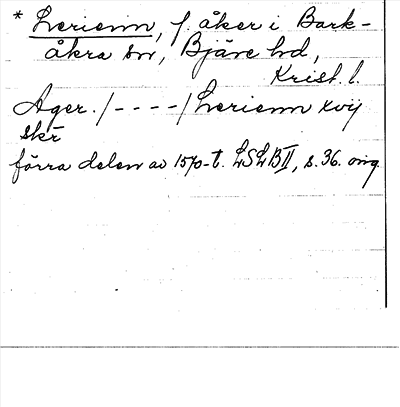 * Lerienn, f. åker i Bark-
åkra sn, Bjäre hd,
Krist. l.
Ager. /----/ Lerienn xvij
skr
förra delen av 1570-t. LSLB II, s. 36. orig